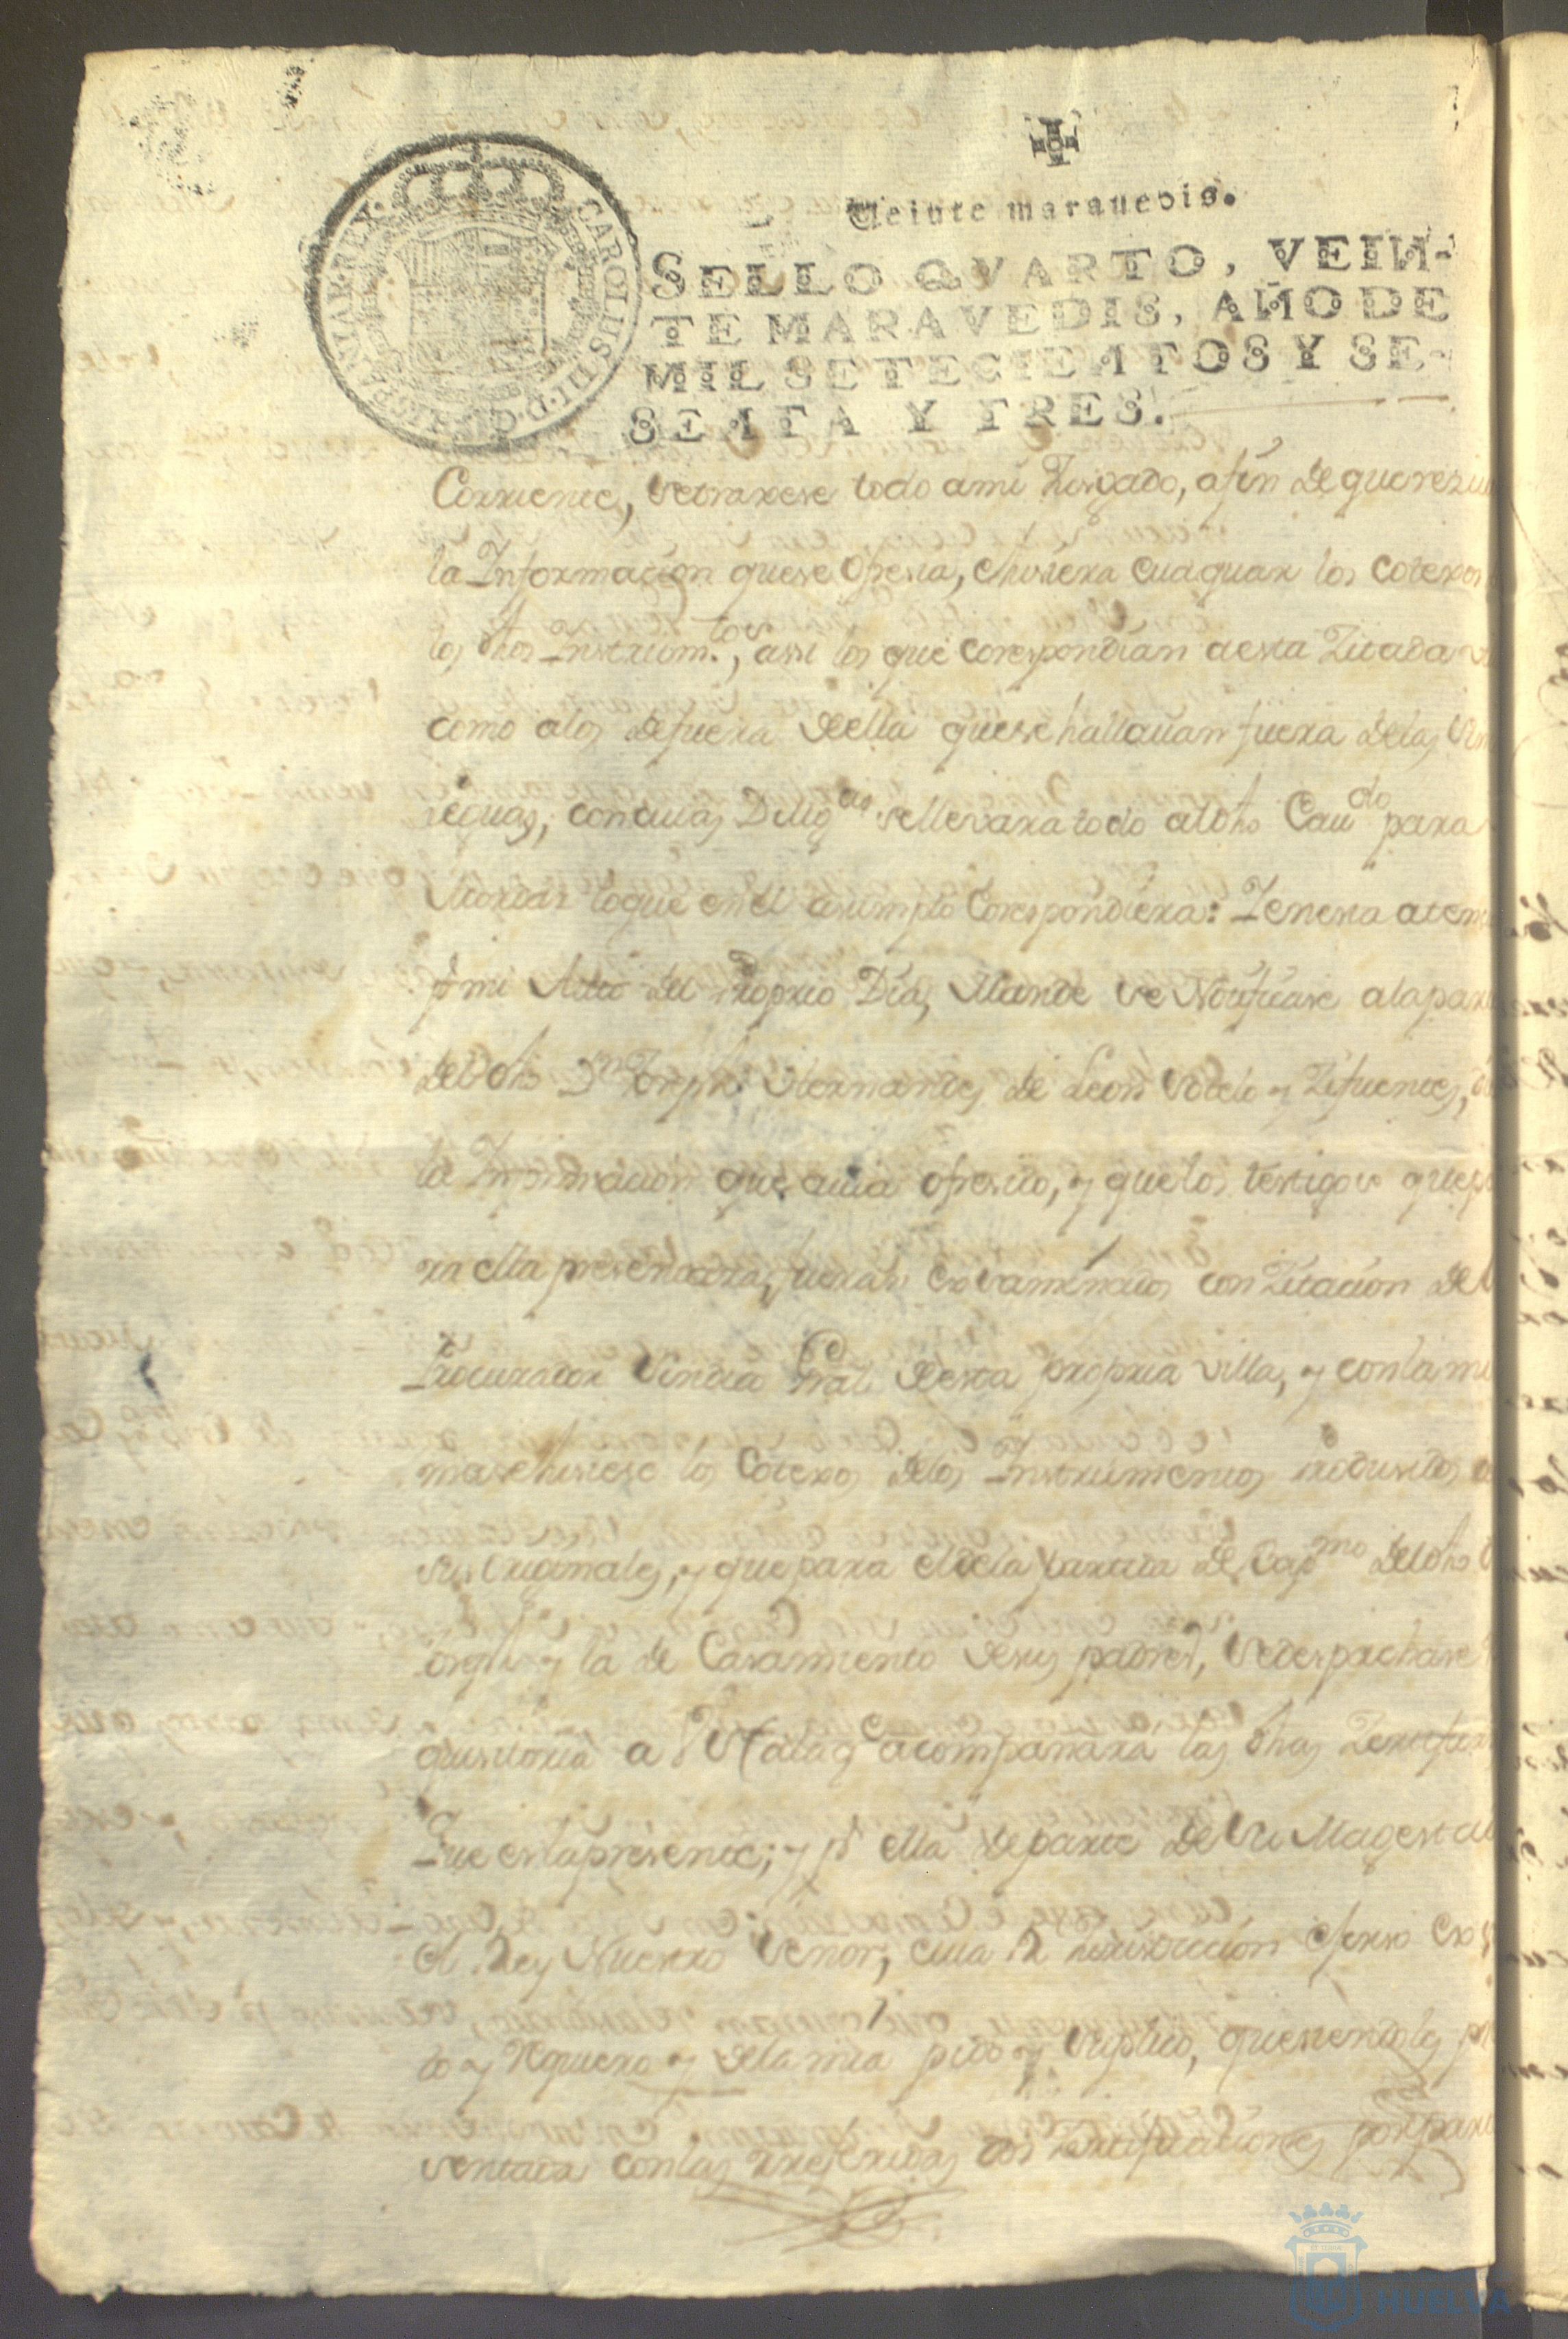 CAROLUS III D G HISPANIAR REX
Veinte maravedis.
SELLO QVARTO, VEIN-
TE MARAVEDIS, AÑO DE
MIL SETECIENTOS Y SE-
SENTA Y TRES.
Corriente, setraxese todo ami Juzgado, afin de que
la Informacion que se ofresia, e hisiera evaquar los Cotexos
los dhos Instrum.tos, assi los que corespondian aesta Zitada
como alos defuera deella que se hallauan fuera delas
leguas, con cuias Dilig.as se lleuara todo aldho Cau.do para
Acordar loque en el asumpto Corespondiera: Y en esta
p.r mi Auto del proprio Dia, Mande se Notificase ala
deldho D.n Joseph Hernandes de Leon Sotelo y Zifuentes,
la Informacion que auia ofresido, y que los testigos que
en ella presentara, fueran exsaminados con Zitacion del
Procurador Sindico Gral desta propria villa, y con la
ma se hisiese los Cotexos delos Instrumentos produsidos
sus Originales, y que para el dela partida de Bap.mo deldho
Joseph y la de Casamiento desus padres, se despachase
quisitoria a V. alaq.e acompañara las dhas
Que es la presente; y p.r ella departe de Su Magestad
el Rey Nuestro Señor, cuia R. Jurisdiccion exerso
to y Requiero y dela mia pido y suplico, que siendole
sentada con las referidas dos Zertificaciones por
HUELVA